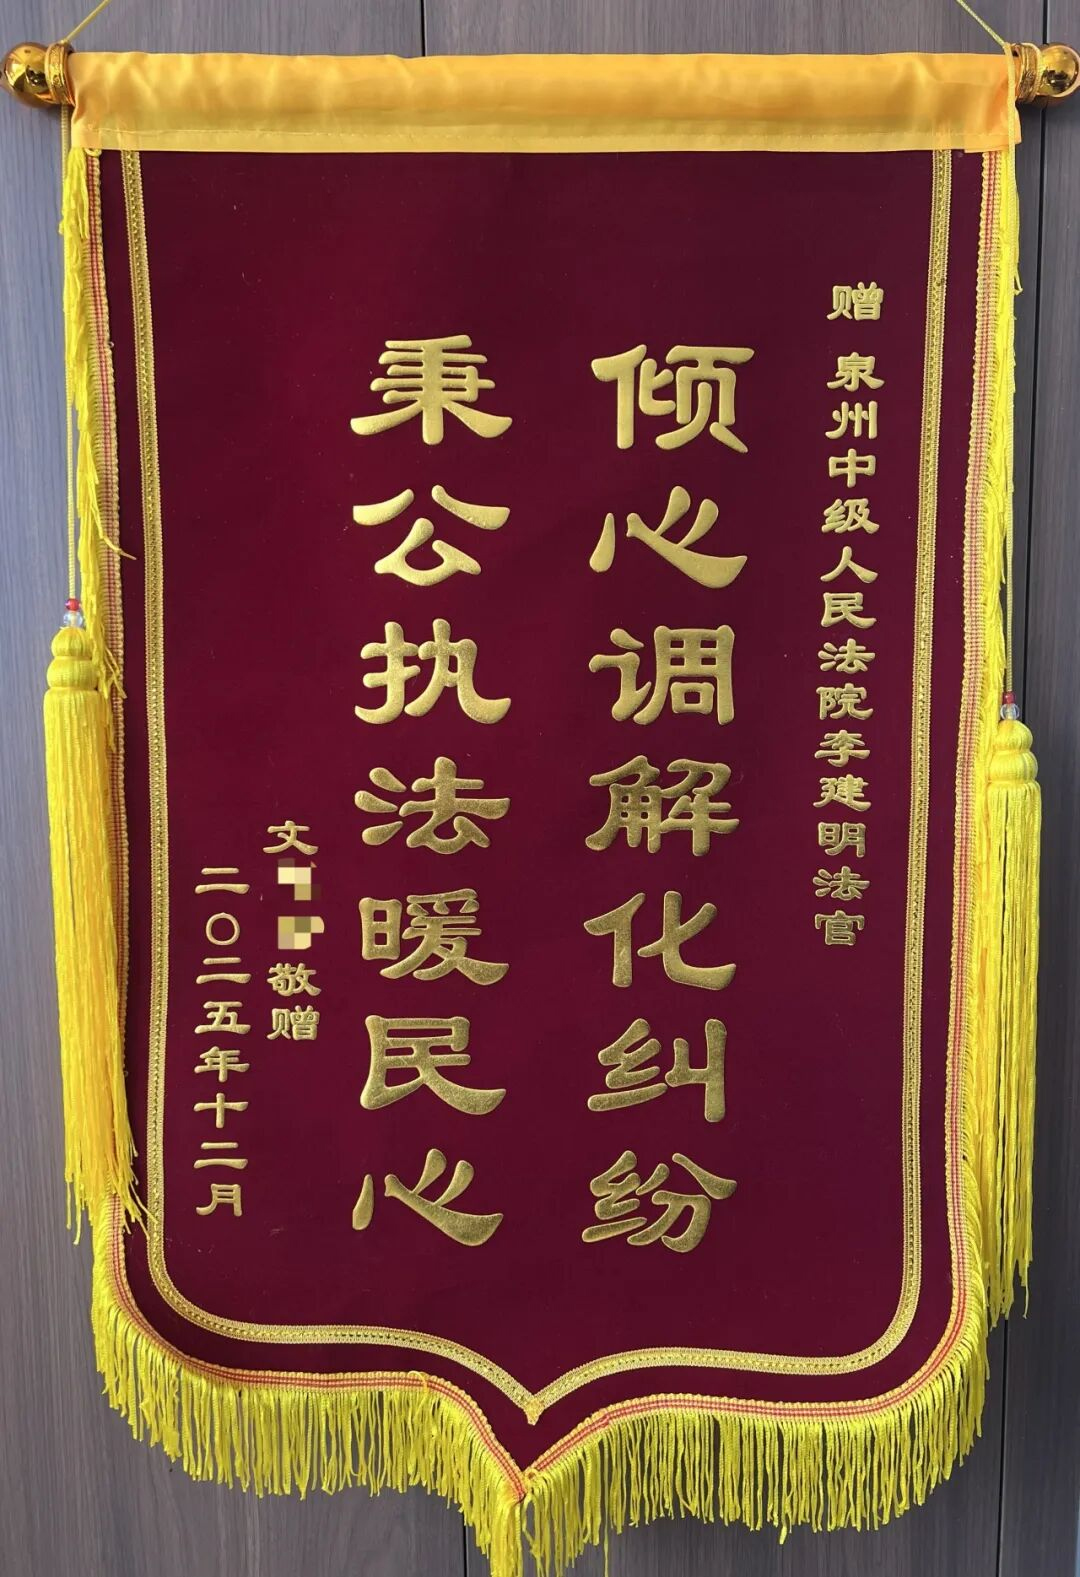 赠 泉州中级人民法院李建明法官
倾心调解化纠纷
秉公执法暖民心
文 敬赠
二〇二五年十二月